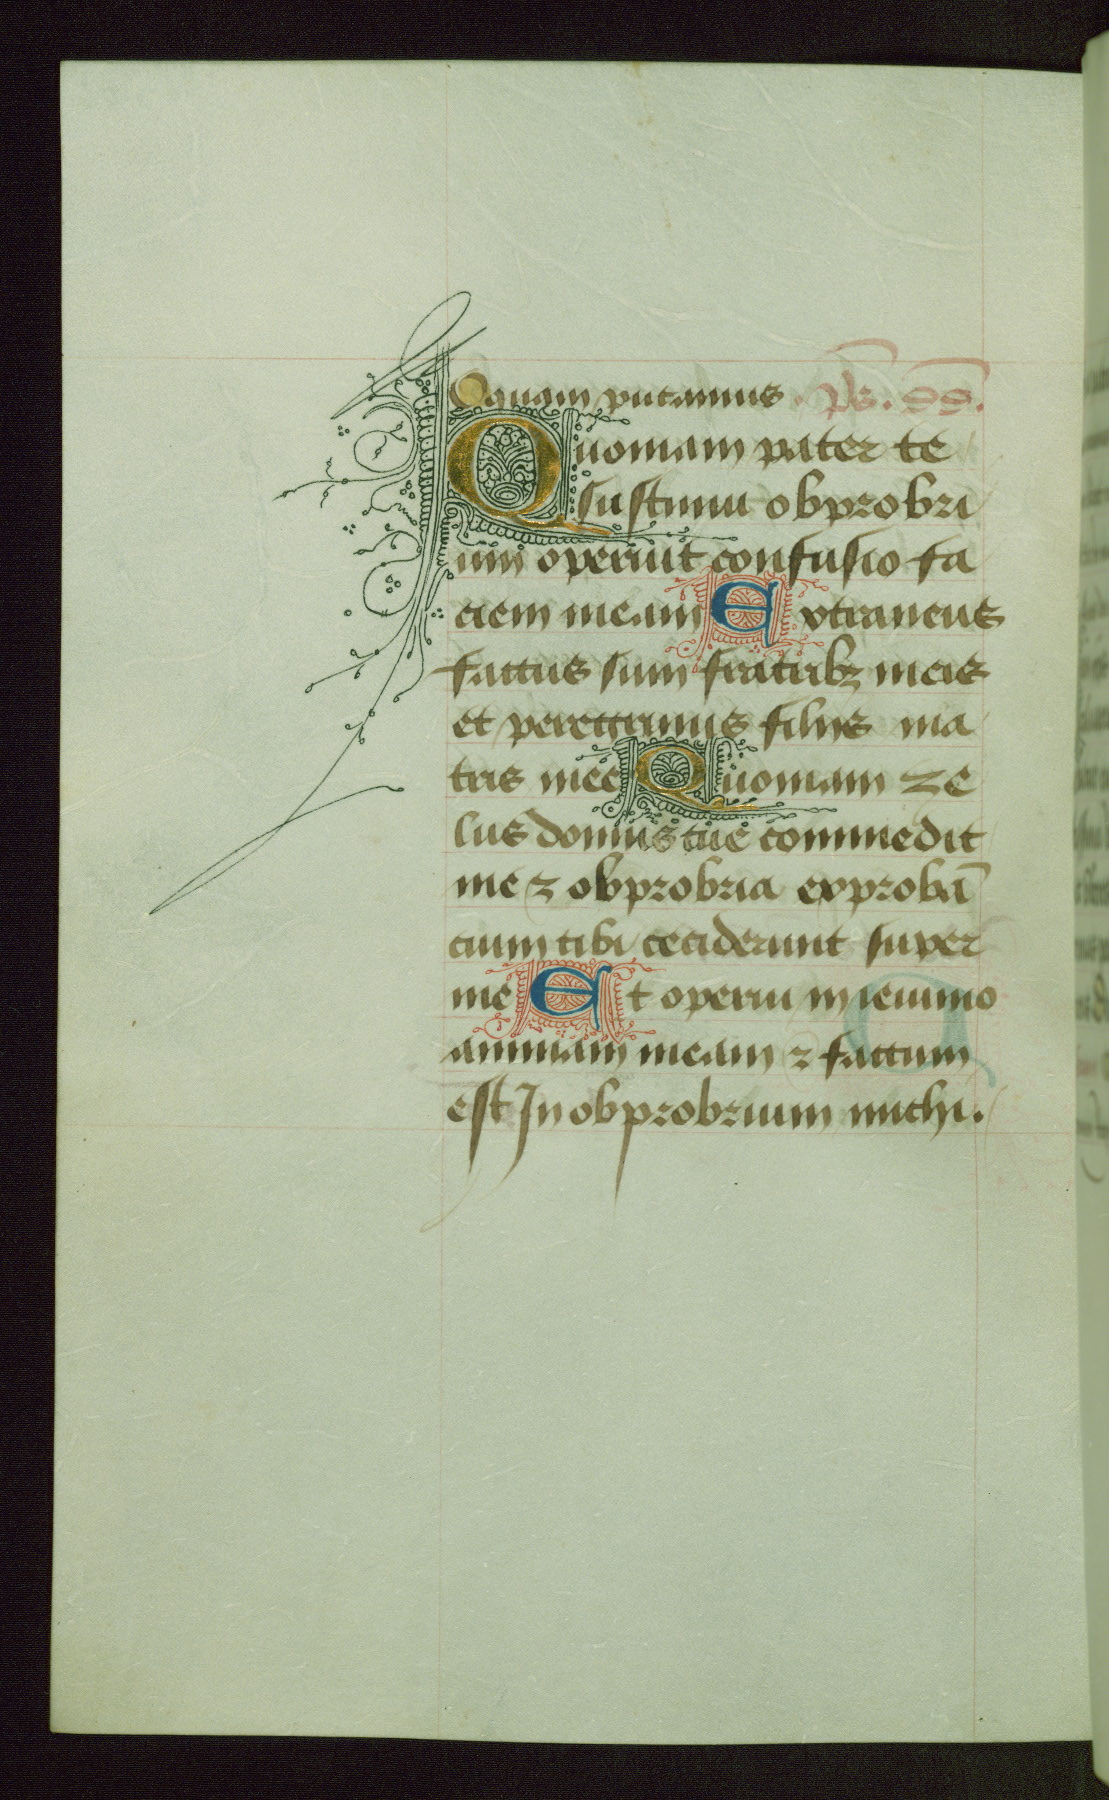 quam putamus. ps. SS.
Quoniam pater te
sustinui obprobri
um operuit confusio fa
ciem meam Extraneus
factus sum fratribz meis
et peregrinus filiis ma
tris mee Quoniam ze
lus domus tue commedit
me ⁊ obprobria exprobā
cium tibi ceciderunt super
me Et operui in ieiunio
animam meam ⁊ factum
est In obprobrium michi.